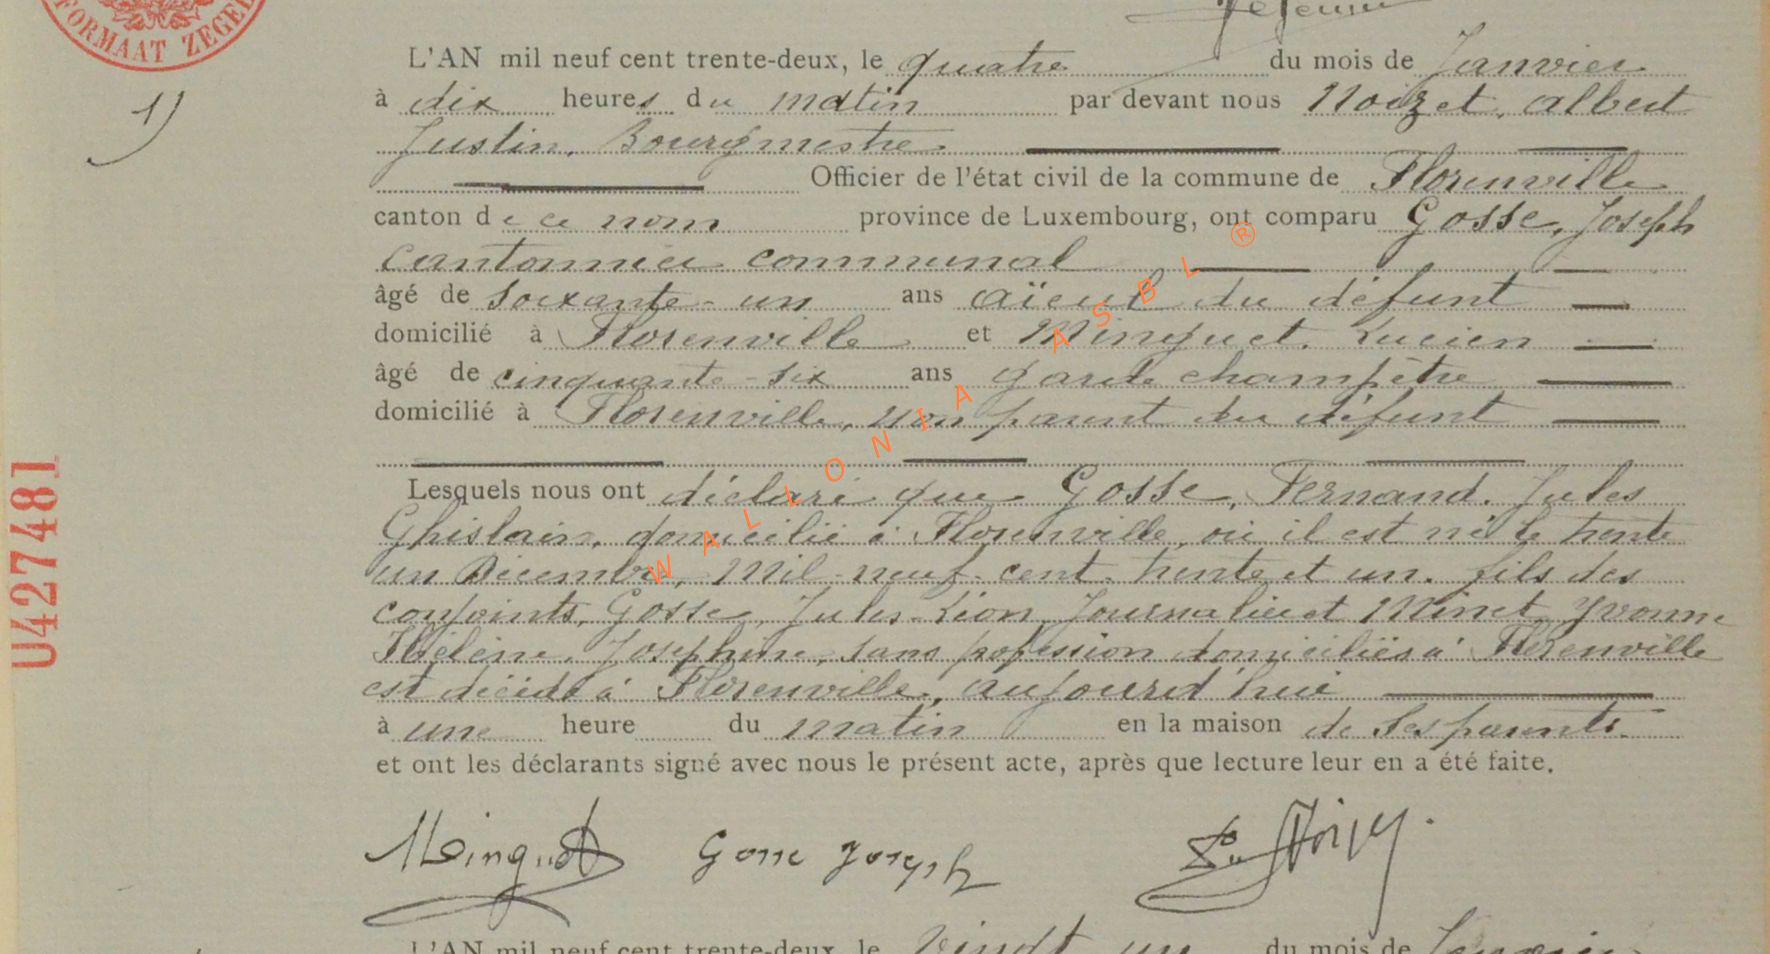 FORMAAT ZEGEL
L'AN mil neuf cent trente-deux, le quatre du mois de Janvier
1)
à dix heures du matin par devant nous Noizet, Albert
Justin, Bourgmestre
Officier de l'état civil de la commune de Florenville
canton de ce nom province de Luxembourg, ont comparu Gosse, Joseph
Cantonnier communal
âgé de soixante-un ans aïeul du défunt
domicilié à Florenville et Minguet, Lucien
âgé de cinquante-six ans garde champêtre
domicilié à Florenville, non parent du défunt
Lesquels nous ont déclaré que Gosse, Fernand, Jules
Ghislain, domicilié à Florenville, où il est né le trente
un Décembre, mil-neuf-cent-trente et un. fils des
conjoints, Gosse, Jules-Léon, Journalier et Minet, Yvonne
Hélène, Joséphine, sans profession domiciliés à Florenville
est décédé à Florenville, aujourd'hui
à une heure du matin en la maison de ses parents.
et ont les déclarants signé avec nous le présent acte, après que lecture leur en a été faite.
Minguet Gosse Joseph
L'AN mil neuf cent trente-deux, le vingt un du mois de Janvier
U427481
WALLONIA ASBL ®